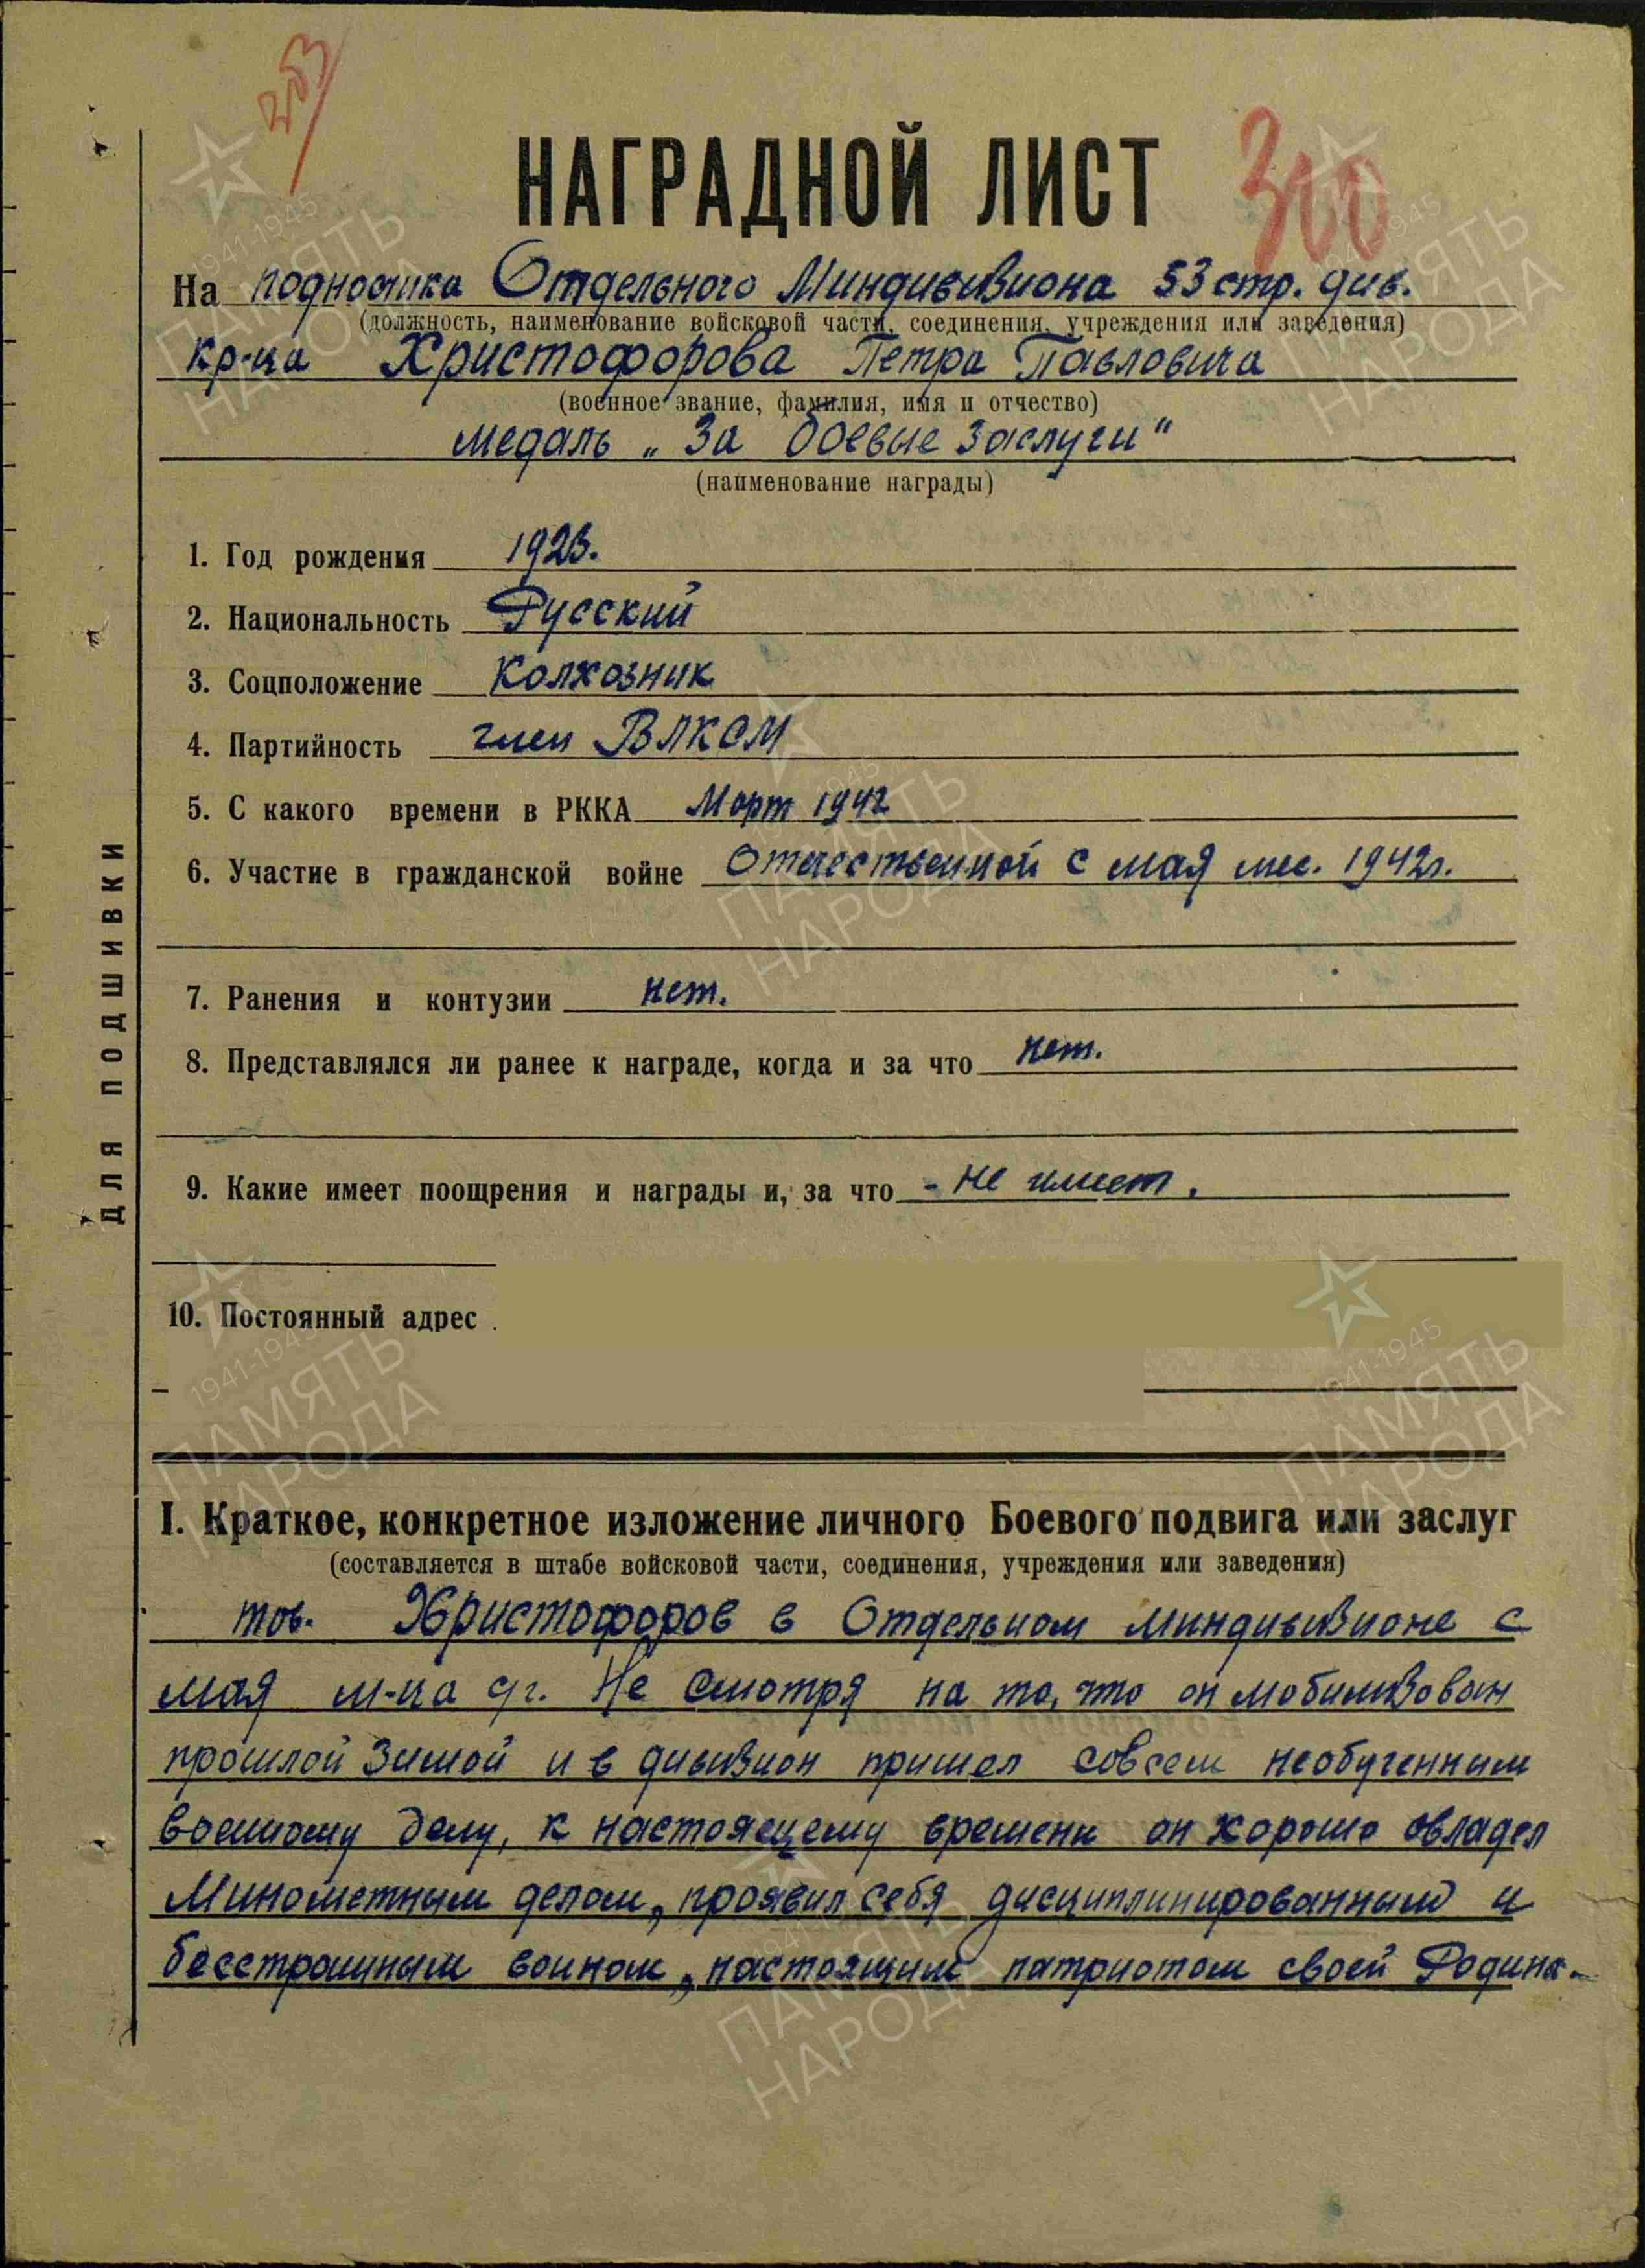 253
НАГРАДНОЙ ЛИСТ 300
На подносчика Отдельного Миндивизиона 53 стр. див.
(должность, наименование войсковой части, соединения, учреждения или заведения)
кр-ца Христофорова Петра Павловича
(военное звание, фамилия, имя и отчество)
медаль „За боевые заслуги"
(наименование награды)
1. Год рождения 1923.
2. Национальность Русский
3. Соцположение Колхозник
4. Партийность член ВЛКСМ
5. С какого времени в РККА Март 1942
6. Участие в гражданской войне Отечественной с мая мес. 1942г.
7. Ранения и контузии нет.
8. Представлялся ли ранее к награде, когда и за что нет.
9. Какие имеет поощрения и награды и, за что - Не имеет.
10. Постоянный адрес
ДЛЯ ПОДШИВКИ
I. Краткое, конкретное изложение личного Боевого подвига или заслуг
(составляется в штабе войсковой части, соединения, учреждения или заведения)
тов. Христофоров в Отдельном миндивизионе с
мая м-ца с/г. Не смотря на то, что он мобилизован
прошлой зимой и в дивизион пришел совсем необученным
военному делу, к настоящему времени он хорошо овладел
Минометным делом, проявил себя дисциплинированным и
бесстрашным воином, настоящим патриотом своей Родины.
1941-1945
ПАМЯТЬ
НАРОДА